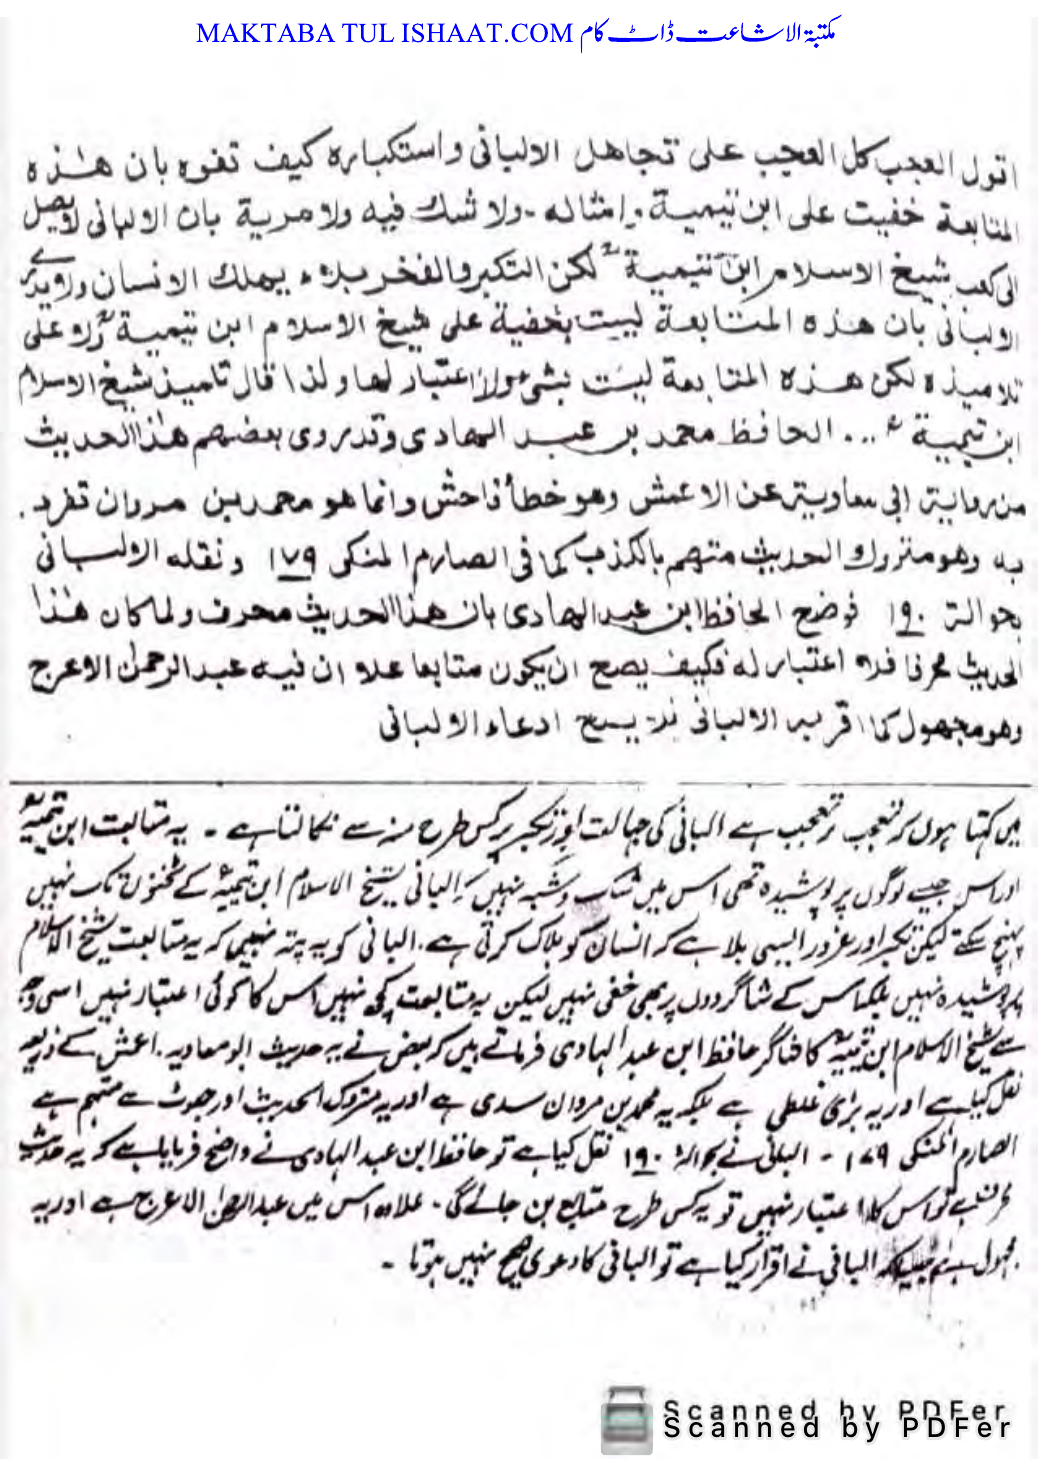 MAKTABA TUL ISHAAT.COM مکتبۃ الاشاعت ڈاٹ کام
اقول العجب كل العجب على تجاهل الالبانى واستكباره كيف تفوه بان هٰذه
المتابعة خفيت على ابن تيمية وامثاله - ولا شك فيه ولا مرية بان الالبانى لا يصل
الى كعب شيخ الاسلام ابن تيمية لكن التكبر والفخر بلاء يهلك الانسان ولا يدرى
الالبانى بان هذه المتابعة ليست بخفية على شيخ الاسلام ابن تيمية ولا على
تلاميذه لكن هذه المتابعة ليست بشئ ولا اعتبار لها ولذا قال تلميذ شيخ الاسلام
ابن تيمية ... الحافظ محمد بن عبد الهادى وقد روى بعضهم هٰذا الحديث
من رواية ابى معاوية عن الاعمش وهو خطأ فاحش وانما هو محمد بن مروان تفرد
به وهو متروك الحديث متهم بالكذب كما فى الصارم المنكى ١٧٩ ونقله الالبانى
بحوالة ١٩٠ فوضح الحافظ ابن عبد الهادى بان هٰذا الحديث محرف ولما كان هٰذا
الحديث محرفا فلا اعتبار له فكيف يصح ان يكون متابعا علا و ان فيه عبد الرحمٰن الاعرج
وهو مجهول كما اقر به الالبانى فلا يصح ادعاء الالبانى
میں کہتا ہوں کہ تعجب در تعجب ہے البانی کی جہالت اور تکبر پر کس طرح منہ سے نکالتا ہے ۔ یہ متابعت ابن تیمیہؒ
اور اس جیسے لوگوں پر پوشیدہ تھی اس میں شک و شبہ نہیں کہ البانی شیخ الاسلام ابن تیمیہؒ کے ٹخنوں تک نہیں
پہنچ سکتے لیکن تکبر اور غرور ایسی بلا ہے کہ انسان کو ہلاک کرتی ہے . البانی کو یہ پتہ نہیں کہ یہ متابعت شیخ الاسلام
پر پوشیدہ نہیں بلکہ اس کے شاگردوں پر بھی خفی نہیں لیکن یہ متابعت کچھ نہیں اس کا کوئی اعتبار نہیں اسی وجہ
سے شیخ الاسلام ابن تیمیہؒ کا شاگر حافظ ابن عبد الہادی فرماتے ہیں کہ بعض نے یہ حدیث ابو معاویہ . اعمش کے ذریعہ
نقل کیا ہے اور یہ بڑی غلطی ہے بلکہ یہ محمد بن مروان سدی ہے اور یہ متروک الحدیث اور جھوٹ سے متہم ہے
الصارم المنکی ١٧٩ ۔ البانی نے بحوالہ ١٩٠ نقل کیا ہے تو حافظ ابن عبد الہادی نے واضح فرمایا ہے کہ یہ حدیث
محرف ہے تو اس کا اعتبار نہیں تو یہ کس طرح متابع بن جائے گی ۔ علاوہ اس میں عبد الرحمٰن الاعرج ہے اور یہ
مجہول ہے جیسا کہ البانی نے اقرار کیا ہے تو البانی کا دعوی صحیح نہیں ہوتا ۔
Scanned by PDFer
Scanned by PDFer